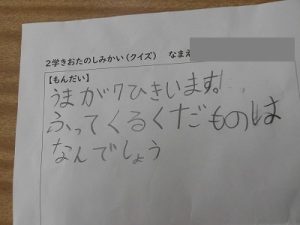 2学きおたのしみかい(クイズ) なまえ
【もんだい】
うまが7ひきいます。
ふってくるくだものは
なんでしょう